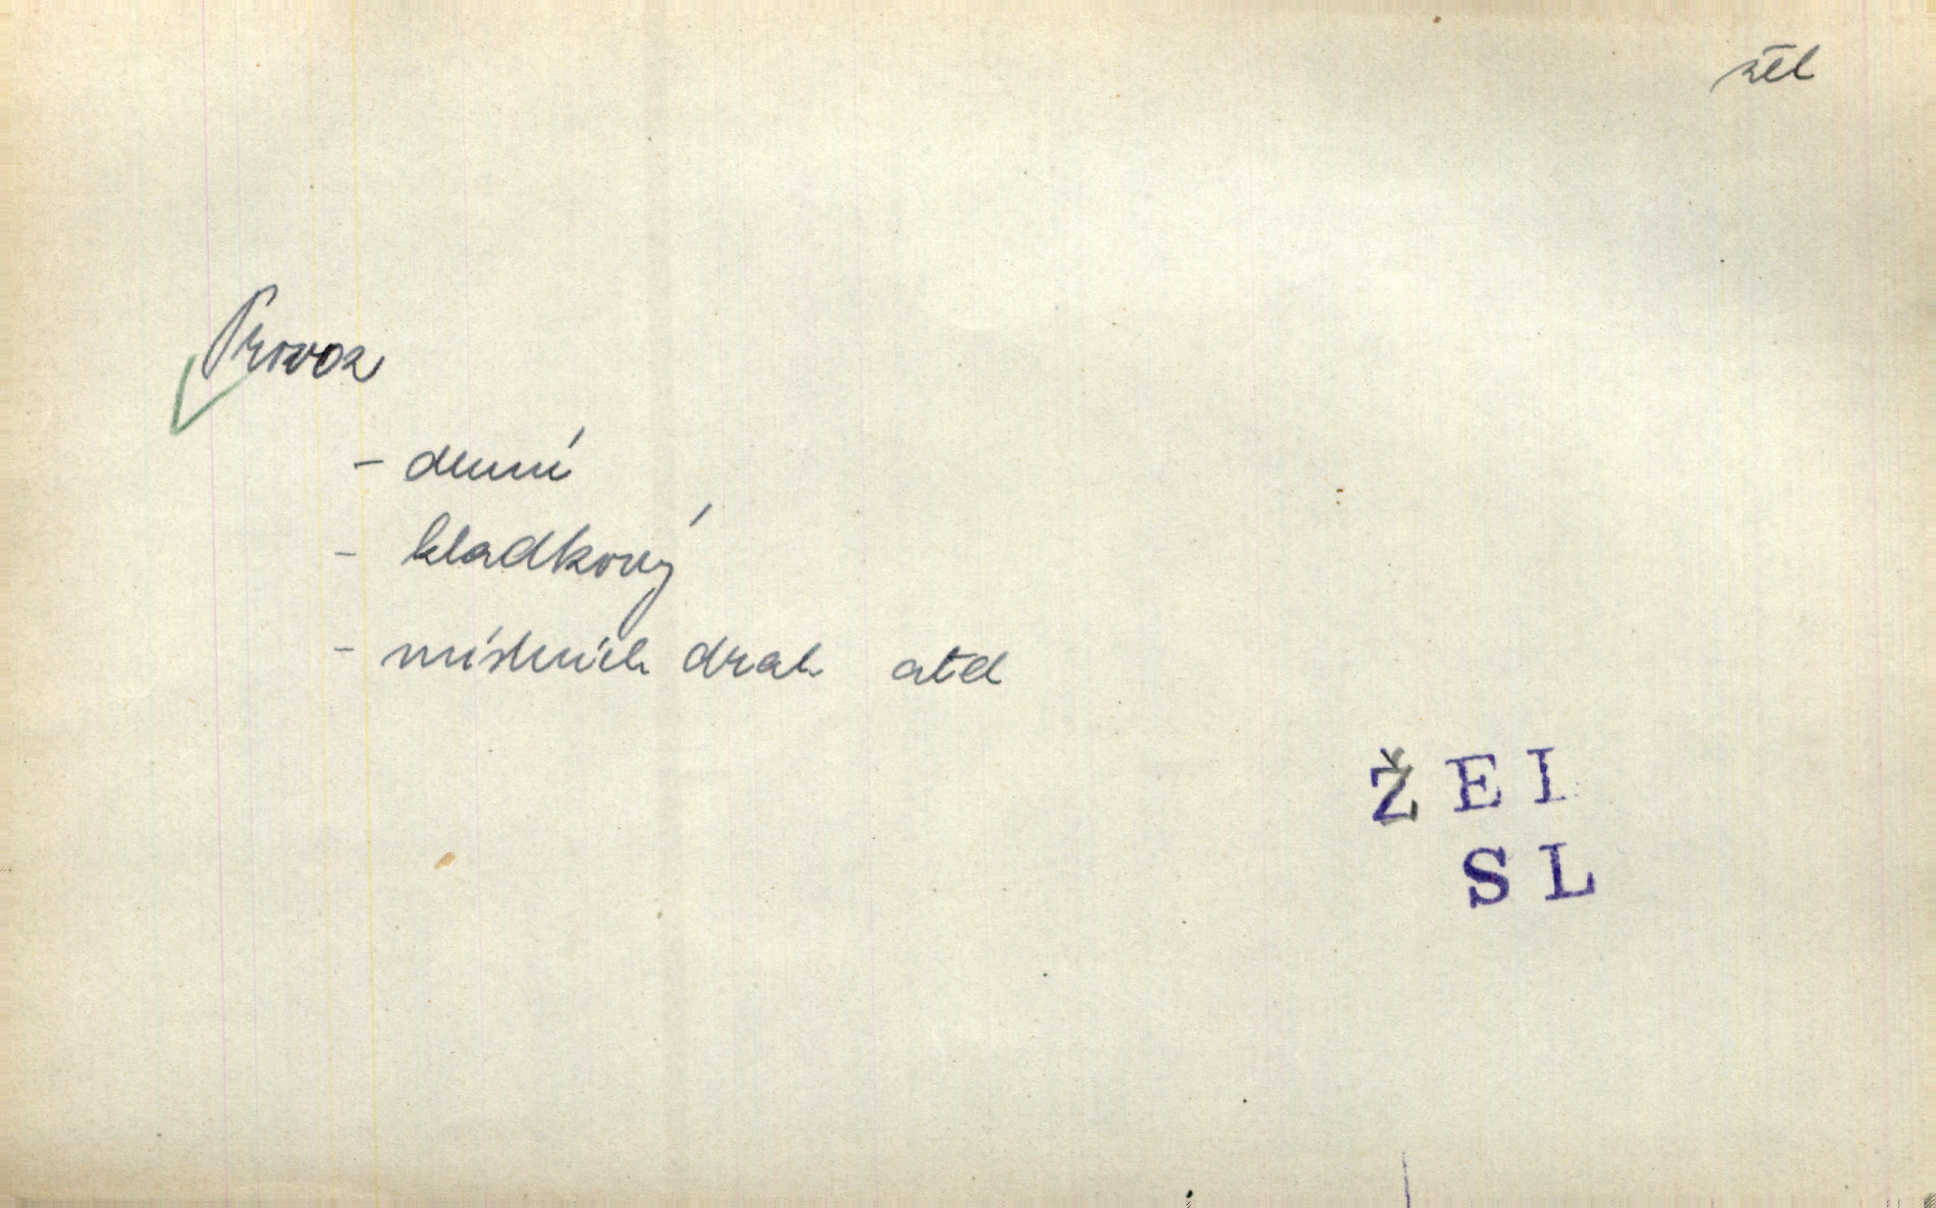 žel
Provoz
- denní
- kladkový
- místních drah atd
ŽEL
SL